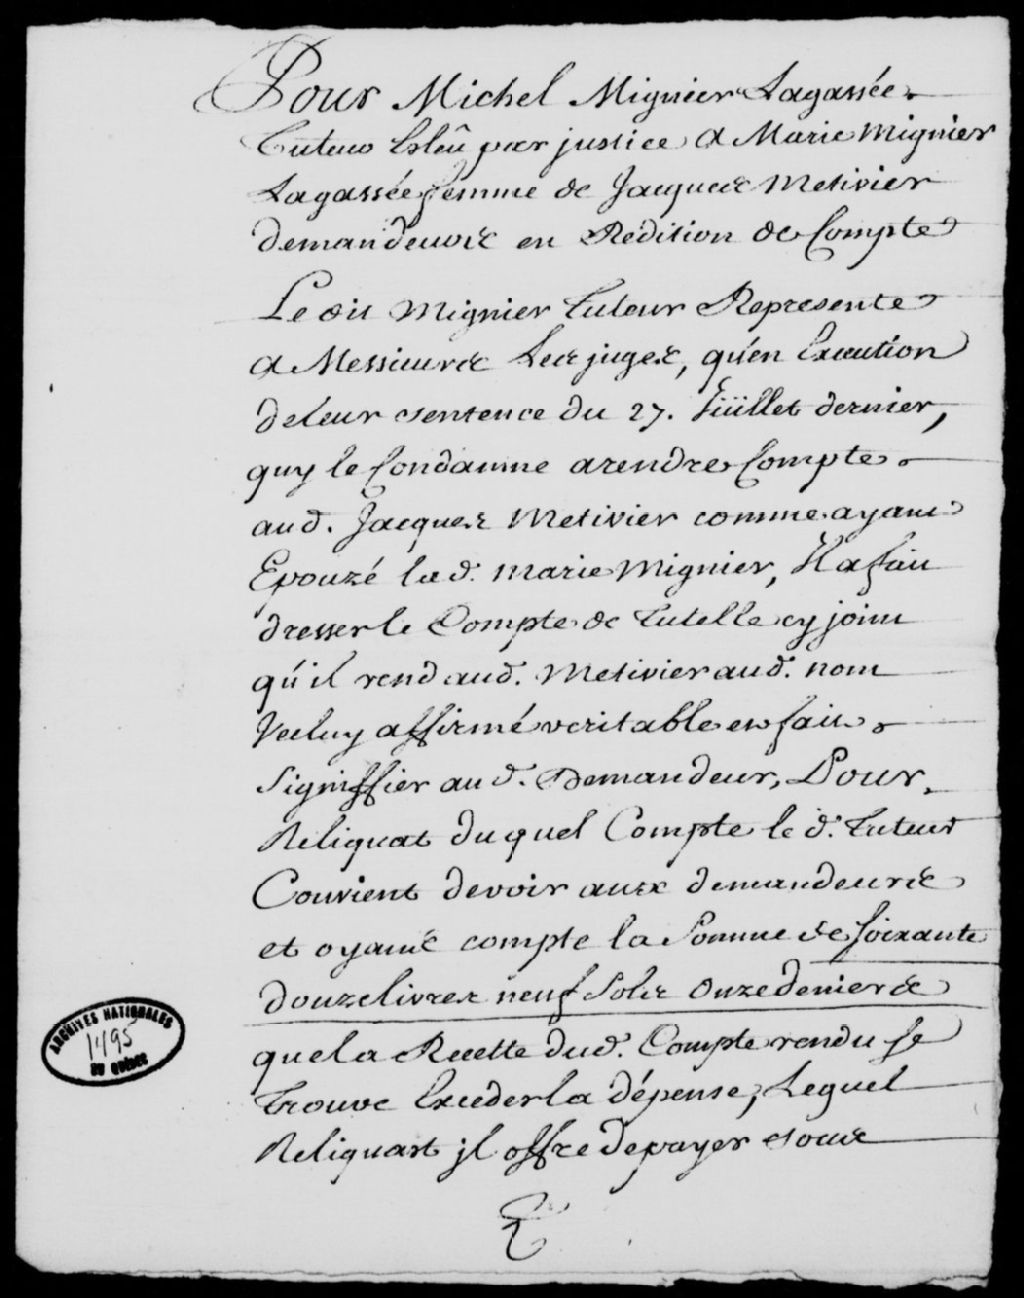 Pour Michel Mignier Lagassée
Tuteur Esleû par justice A Marie Mignier
Lagassée femme de Jacques Metivier
demandeurs en Redition de Compte
Le dit Mignier Tuteur Represente
A Messieurs Les juges, qu'en Execution
de leur sentence du 27. Juillet dernier,
quy le Condamne a rendre Compte
aud. Jacques Metivier comme ayant
Epouzé lad. marie Mignier, Il a fait
dresser le Compte de Tutelle cy joint
qu'il rend aud. Metivier aud. nom
Iceluy affirmé veritable et fait
Signiffier aud. Demandeur, Pour
Reliquat du quel Compte le d. Tuteur
Convient devoir aux demandeurs
et oyants compte la Somme de soixante
douze livres neuf Sols Onze deniers
que la Recette dud. Compte rendu se
trouve Exceder la dépense, Lequel
Reliquat jl offre de payer sous
ARCHIVES NATIONALES
1495
DU QUÉBEC